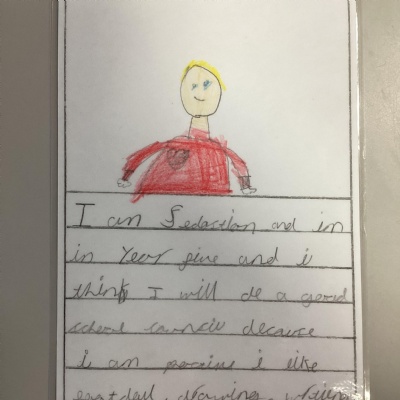 I am Sedastion and im
in Year five and i
think I will de a good
school council decause
i am i like
drawing, writing